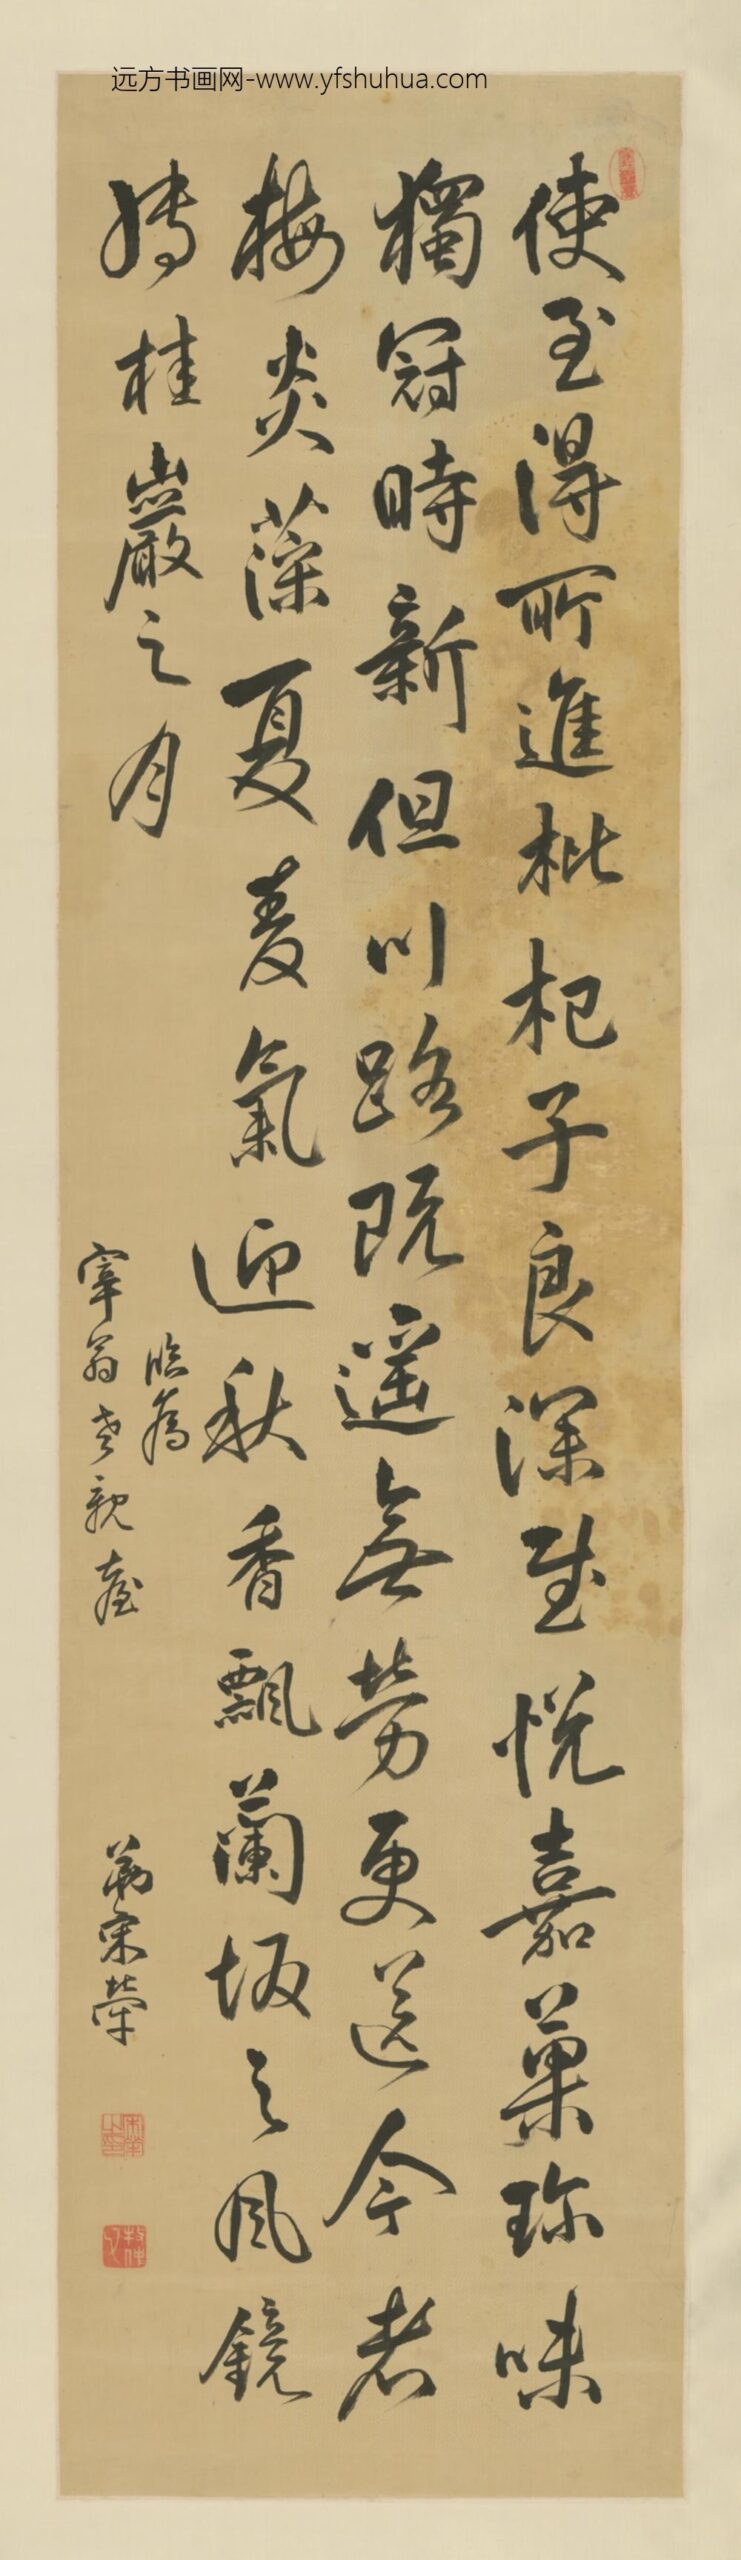 远方书画网-www.yfshuhua.com
使至得所進枇杷子良深慰悅嘉菓珍味
獨冠時新但川路既遥無勞更送今者
梅炎藻夏麦氣迎秋香飄蘭坂之风鏡
轉桂巖之月
臨為
宰翁老親臺
弟宋犖